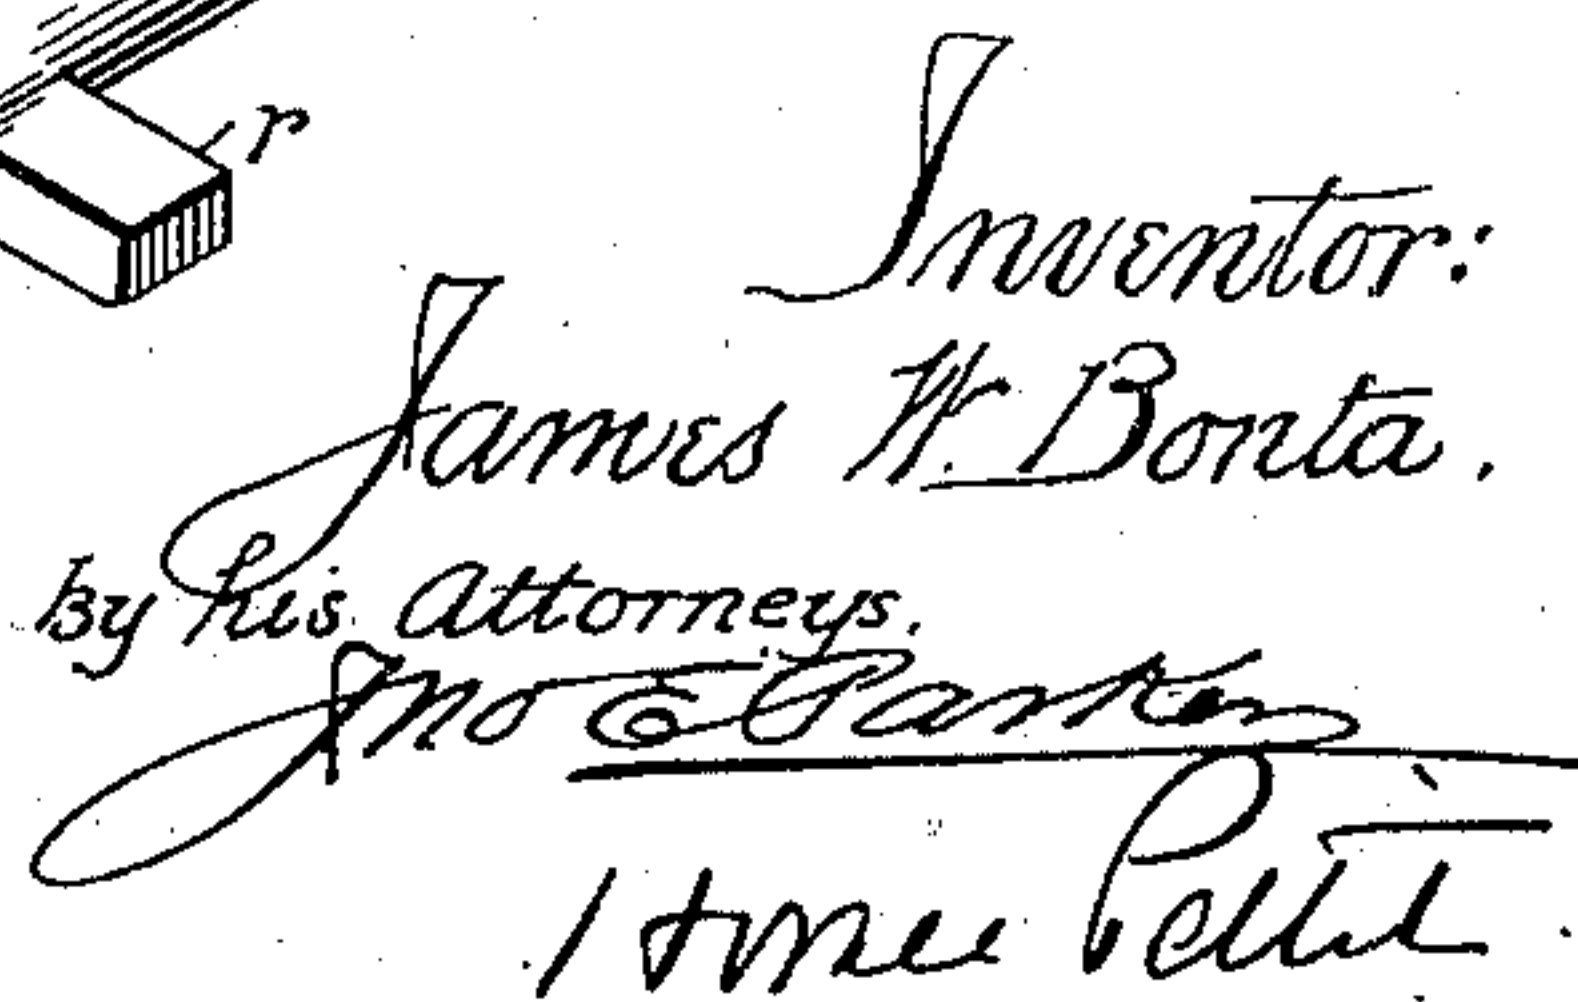 r
Inventor:
James W. Bonta.
by his Attorneys.
Jno E Parker
Horace Pettit.